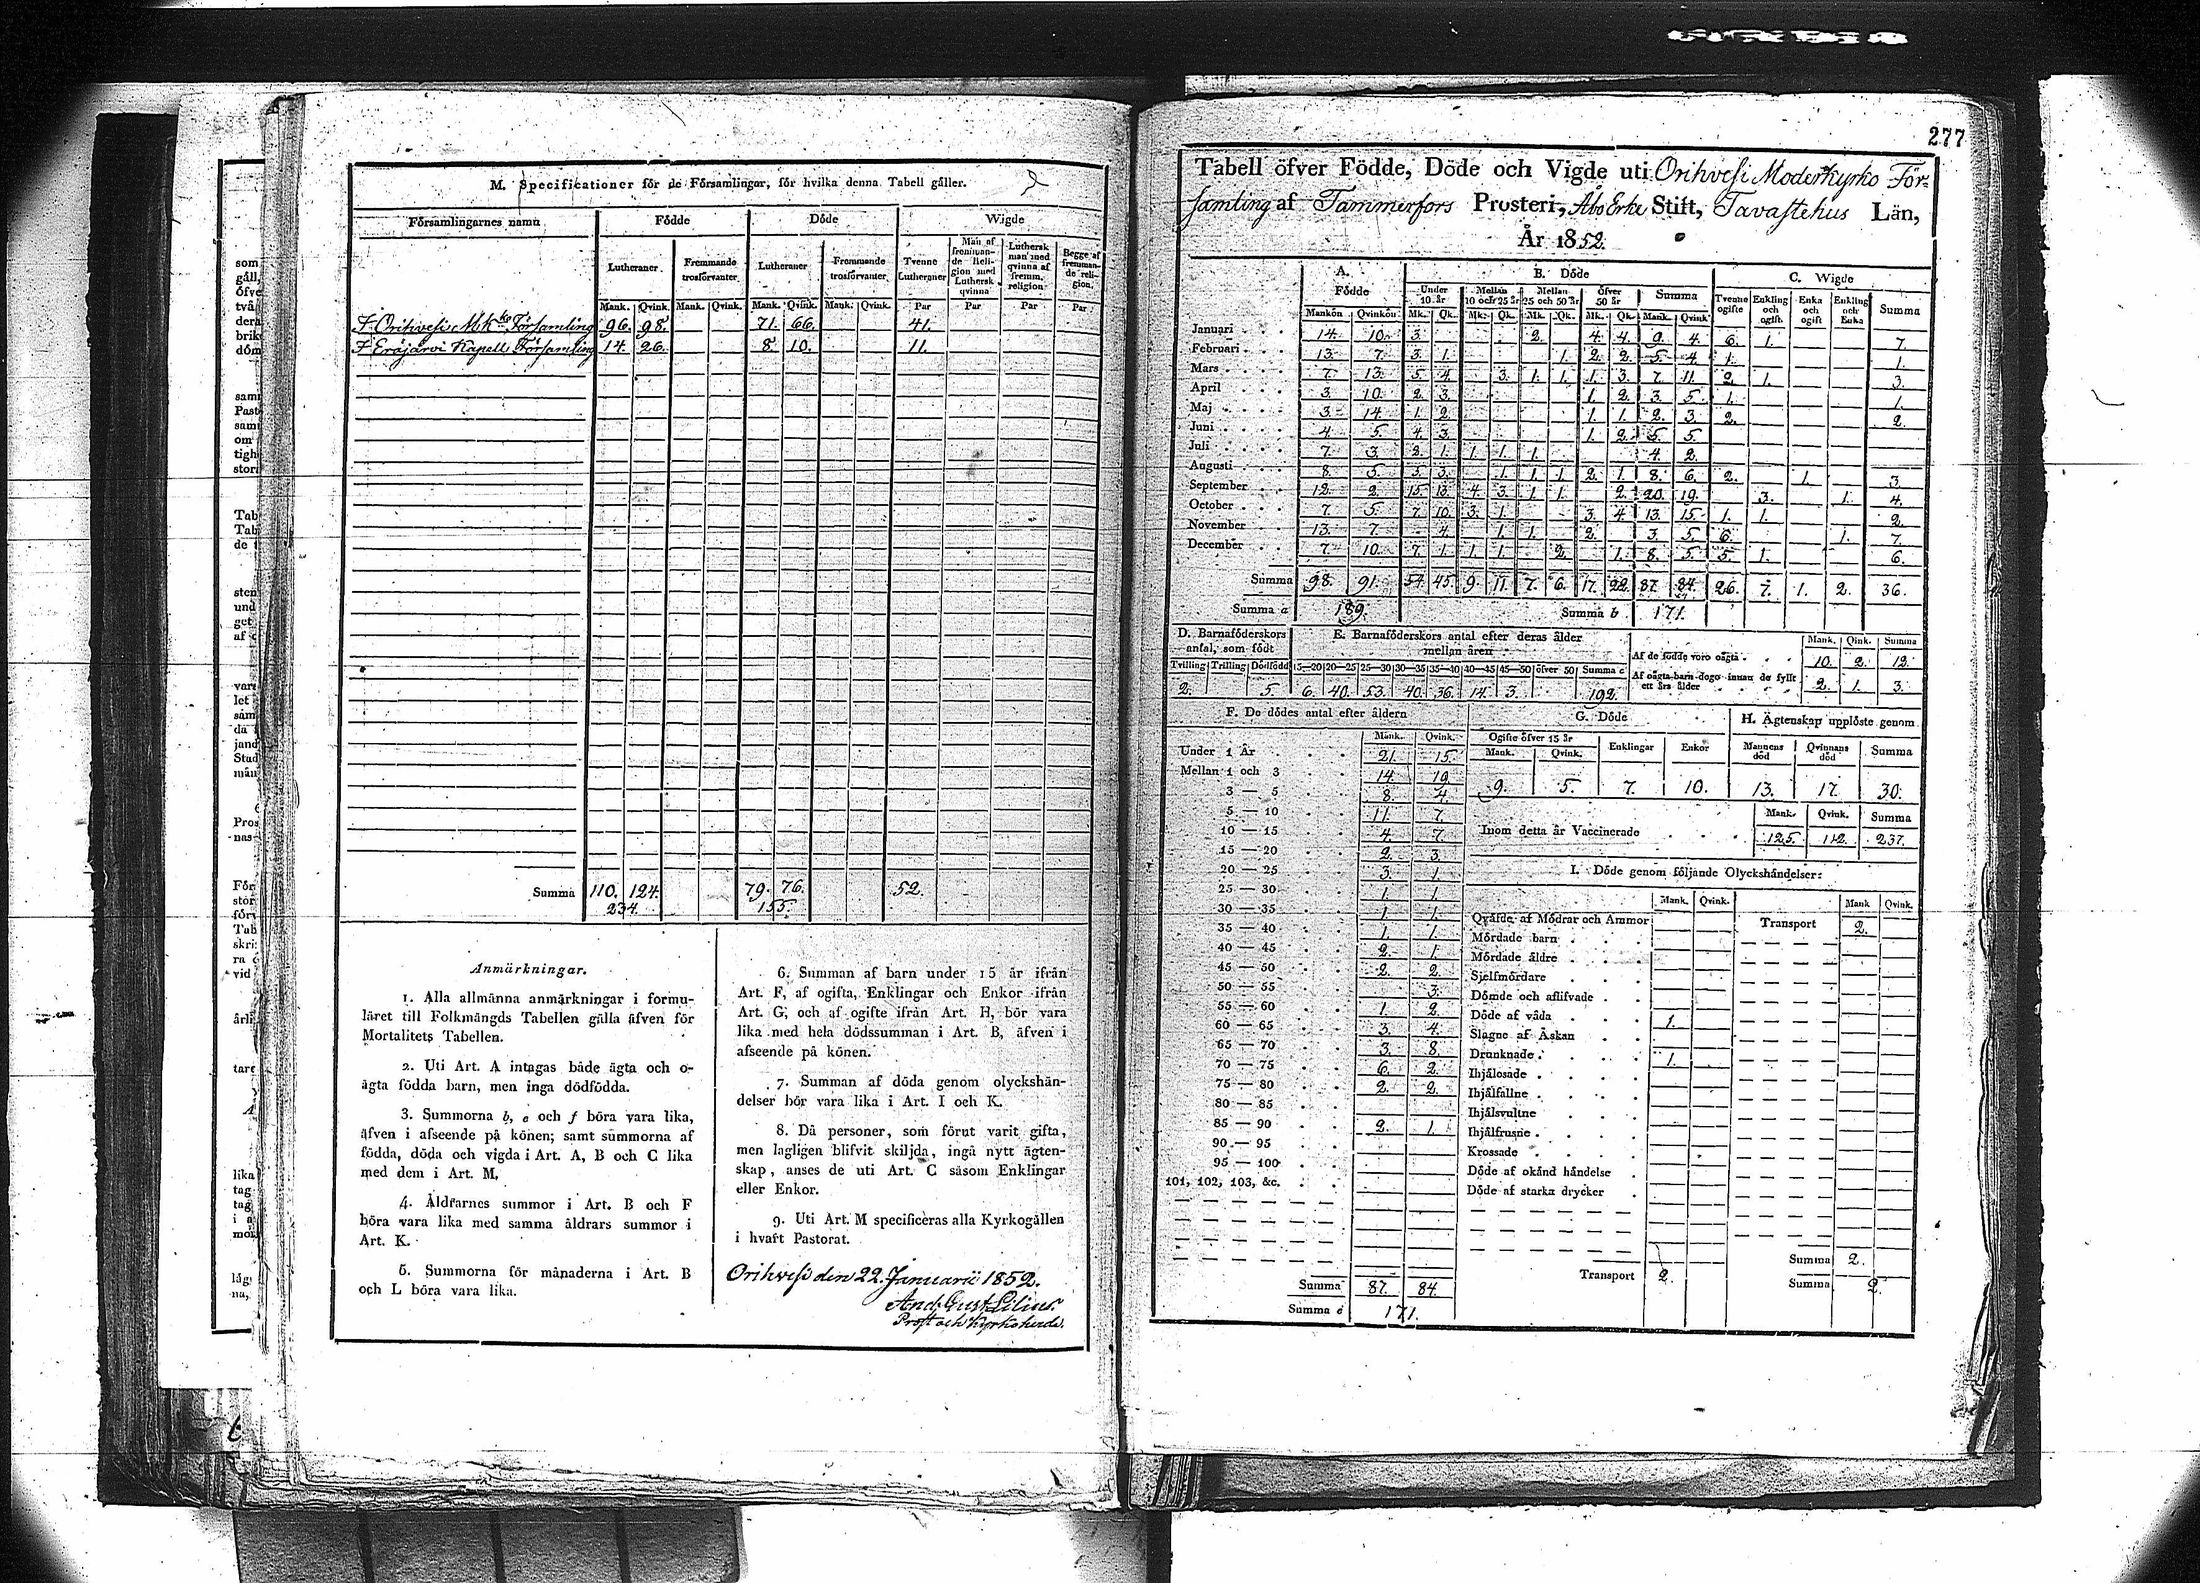 M. Specificationer för de Församlingar, för hvilka denna Tabell gäller.
Församlingarnes namn Födde Döde Wigde
Lutheraner. Fremmande trosförvanter. Lutheraner Fremmande trosförvanter. Tvenne Lutheraner Män af fremmande Religion med Luthersk qvinna Luthersk man med qvinna af fremm. religion Begge af fremmande religion.
Mank. Qvink. Mank. Qvink. Mank. Qvink. Mank. Qvink. Par Par Par Par
I Orihvesi M.K. Församling 96. 98. 71. 66. 41.
I Eräjärvi Kapell Församling 14. 26. 8. 10. 11.
Summa 110. 124. 79. 76. 52.
234. 155.
Anmärkningar.
1. Alla allmänna anmärkningar i formu-
läret till Folkmängds Tabellen gälla äfven för
Mortalitets Tabellen.
2. Uti Art. A intagas både ägta och o-
ägta födda barn, men inga dödfödda.
3. Summorna b, e och f böra vara lika,
äfven i afseende på könen; samt summorna af
födda, döda och vigda i Art. A, B och C lika
med dem i Art. M.
4. Åldrarnes summor i Art. B och F
böra vara lika med samma åldrars summor i
Art. K.
5. Summorna för månaderna i Art. B
och L böra vara lika.
6. Summan af barn under 15 år ifrån
Art. F, af ogifta, Enklingar och Enkor ifrån
Art. G, och af ogifte ifrån Art. H, bör vara
lika med hela dödssumman i Art. B, äfven i
afseende på könen.
7. Summan af döda genom olyckshän-
delser bör vara lika i Art. I och K.
8. Då personer, som förut varit gifta,
men lagligen blifvit skiljda, ingå nytt ägten-
skap, anses de uti Art. C såsom Enklingar
eller Enkor.
9. Uti Art. M specificeras alla Kyrkogällen
i hvart Pastorat.
Orihvesi den 22. Januarii 1852.
And. Gust. Lilius.
Prost och Kyrkoherde.
277
Tabell öfver Födde, Döde och Vigde uti Orihvesi Moderkyrko För-
samling af Tammerfors Prosteri, Åbo Erke Stift, Tavastehus Län,
År 1852.
A. Födde B. Döde C. Wigde
Under 10 år Mellan 10 och 25 år Mellan 25 och 50 år Öfver 50 år Summa Tvenne ogifte Enkling och ogift. Enka och ogift Enkling och Enka Summa
Mankön Qvinkön Mk. Qk. Mk. Qk. Mk. Qk. Mk. Qk. Mank. Qvink.
Januari 14. 10. 3. 2. 4. 4. 9. 4. 6. 1. 7.
Februari 13. 7. 3. 1. 1. 2. 2. 5. 4. 1. 1.
Mars 7. 13. 5. 4. 3. 1. 1. 1. 3. 7. 11. 2. 1. 3.
April 3. 10. 2. 3. 1. 2. 3. 5. 1. 1.
Maj 3. 14. 1. 2. 1. 1. 2. 3. 2. 2.
Juni 4. 5. 4. 3. 1. 2. 5. 5.
Juli 7. 3. 2. 1. 1. 1. 1. 4. 2.
Augusti 8. 5. 5. 3. 1. 1. 1. 2. 1. 8. 6. 2. 1. 3.
September 12. 2. 15. 13. 4. 3. 1. 1. 2. 20. 19. 3. 1. 4.
October 7. 5. 7. 10. 3. 1. 3. 4. 13. 15. 1. 1. 2.
November 13. 7. 4. 1. 1. 2. 3. 5. 6. 1. 7.
December 7. 10. 7. 1. 1. 1. 2. 1. 8. 5. 5. 1. 6.
Summa 98. 91. 54. 45. 9. 11. 7. 6. 17. 22. 87. 84. 26. 7. 1. 2. 36.
Summa a 189. Summa b 171.
D. Barnaföderskors antal, som födt
Tvilling Trilling Dödfödd
2. 5.
E. Barnaföderskors antal efter deras ålder mellan åren
15—20 20—25 25—30 30—35 35—40 40—45 45—50 öfver 50 Summa c
6. 40. 53. 40. 36. 14. 3. 192.
Mank. Qink. Summa
Af de födde voro oägta 10. 2. 12.
Af oägta barn dogo innan de fyllt ett års ålder 2. 1. 3.
F. De dödes antal efter åldern
Mank. Qvink.
Under 1 År 21. 15.
Mellan 1 och 3 14. 19.
3 — 5 8. 4.
5 — 10 11. 7.
10 — 15 4. 7.
15 — 20 2. 3.
20 — 25 3. 1.
25 — 30 1. 1.
30 — 35 1. 1.
35 — 40 1. 1.
40 — 45 2. 1.
45 — 50 2. 2.
50 — 55 3.
55 — 60 1. 2.
60 — 65 3. 4.
65 — 70 3. 8.
70 — 75 6. 2.
75 — 80 2. 2.
80 — 85
85 — 90 2. 1.
90 — 95
95 — 100
101, 102, 103, &c.
Summa 87. 84.
Summa 171.
G. Döde
Ogifte öfver 15 år Enklingar Enkor
Mank. Qvink.
9. 5. 7. 10.
H. Ägtenskap upplöste genom
Mannens död Qvinnans död Summa
13. 17. 30.
Mank. Qvink. Summa
Inom detta år Vaccinerade 125. 112. 237.
I. Döde genom följande Olyckshändelser:
Mank. Qvink. Mank Qvink.
Qväfde af Mödrar och Ammor
Mördade barn
Mördade äldre
Sjelfmördare
Dömde och aflifvade
Döde af våda 1.
Slagne af Åskan
Drunknade 1.
Ihjälosade
Ihjälfallne
Ihjälsvultne
Ihjälfrusne
Krossade
Döde af okänd händelse
Döde af starka drycker
Transport 2.
Transport 2.
Summa 2.
Summa 2.